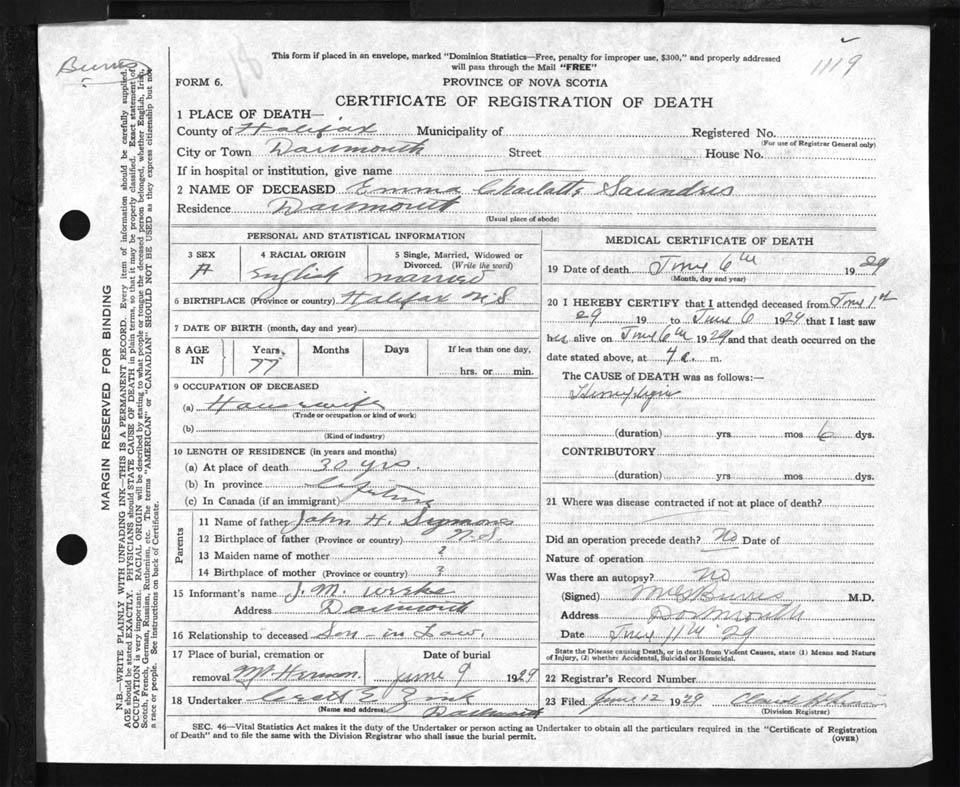 Burns
1119
This form if placed in an envelope, marked "Dominion Statistics—Free, penalty for improper use, $300," and properly addressed
will pass through the Mail "FREE"
FORM 6.
PROVINCE OF NOVA SCOTIA
CERTIFICATE OF REGISTRATION OF DEATH
1 PLACE OF DEATH—
County of Halifax Municipality of Registered No.
(For use of Registrar General only)
City or Town Dartmouth Street House No.
If in hospital or institution, give name
2 NAME OF DECEASED Emma Charlotte Saundres
Residence Dartmouth
(Usual place of abode)
PERSONAL AND STATISTICAL INFORMATION
3 SEX 4 RACIAL ORIGIN 5 Single, Married, Widowed or Divorced. (Write the word)
English married
6 BIRTHPLACE (Province or country) Halifax N.S
7 DATE OF BIRTH (month, day and year)
8 AGE IN Years, Months Days If less than one day,
77 hrs. or min.
9 OCCUPATION OF DECEASED
(a) Housewife
(Trade or occupation or kind of work)
(b)
(Kind of industry)
10 LENGTH OF RESIDENCE (in years and months)
(a) At place of death 30 yrs.
(b) In province lifetime
(c) In Canada (if an immigrant)
Parents
11 Name of father John H. Symons
12 Birthplace of father (Province or country) N.S.
13 Maiden name of mother ?
14 Birthplace of mother (Province or country) ?
15 Informant's name J. M.
Address Dartmouth
16 Relationship to deceased Son-in Law.
17 Place of burial, cremation or removal Mt Hermon. Date of burial June 9 1929
18 Undertaker Zink
(Name and address) Dartmouth
MEDICAL CERTIFICATE OF DEATH
19 Date of death June 6th 1929
(Month, day and year)
20 I HEREBY CERTIFY that I attended deceased from June 1st
29 19 to June 6 1929 that I last saw
her alive on June 6th 1929 and that death occurred on the
date stated above, at 4 a. m.
The CAUSE of DEATH was as follows:—
Hemiplegia
(duration) yrs mos 6 dys.
CONTRIBUTORY
(duration) yrs mos dys.
21 Where was disease contracted if not at place of death?
Did an operation precede death? No Date of
Nature of operation
Was there an autopsy? No
(Signed) Burns M.D.
Address Dartmouth
Date June 11th 29
State the Disease causing Death, or in death from Violent Causes, state (1) Means and Nature of Injury, (2) whether Accidental, Suicidal or Homicidal.
22 Registrar's Record Number
23 Filed June 12 1929
(Division Registrar)
SEC. 46—Vital Statistics Act makes it the duty of the Undertaker or person acting as Undertaker to obtain all the particulars required in the "Certificate of Registration
of Death" and to file the same with the Division Registrar who shall issue the burial permit.
(OVER)
MARGIN RESERVED FOR BINDING
N.B.—WRITE PLAINLY WITH UNFADING INK—THIS IS A PERMANENT RECORD. Every item of information should be carefully supplied.
AGE should be stated EXACTLY. PHYSICIANS should STATE CAUSE OF DEATH in plain terms, so that it may be properly classified. Exact statement of
OCCUPATION is very important. RACIAL ORIGIN will be described by stating to what people or tongue the deceased person belonged, whether English, Irish,
Scotch, French, German, Russian, Ruthenian, etc. The terms "AMERICAN" or "CANADIAN" SHOULD NOT BE USED as they express citizenship but not
a race or people. See instructions on back of Certificate.